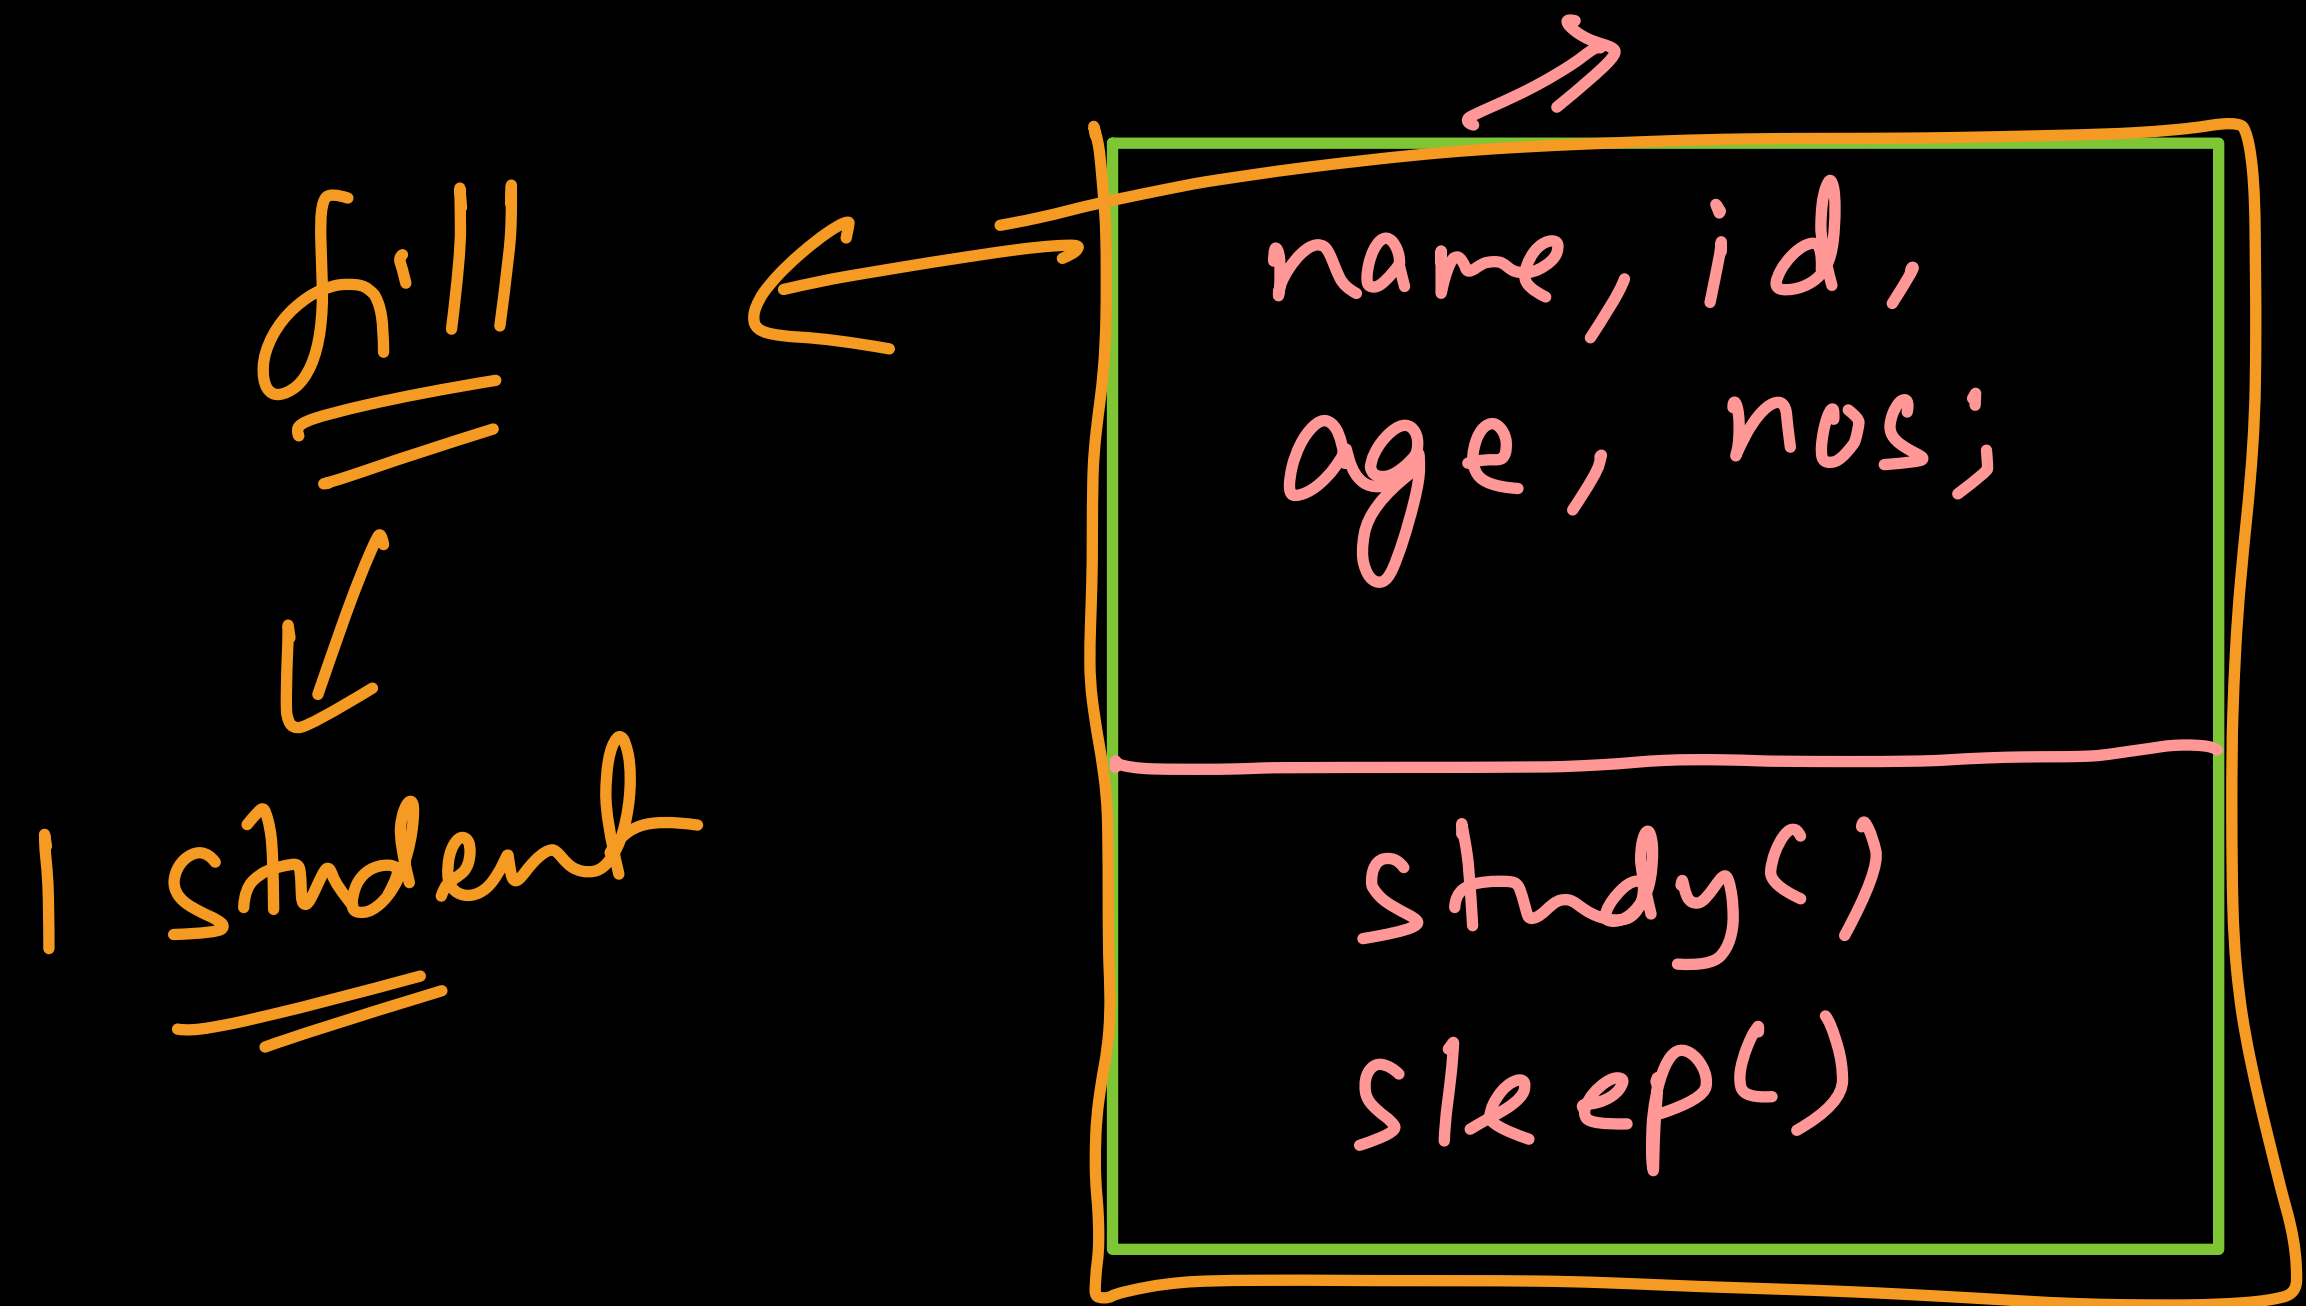 fill
1 student
name, id,
age, nos;
study()
sleep()